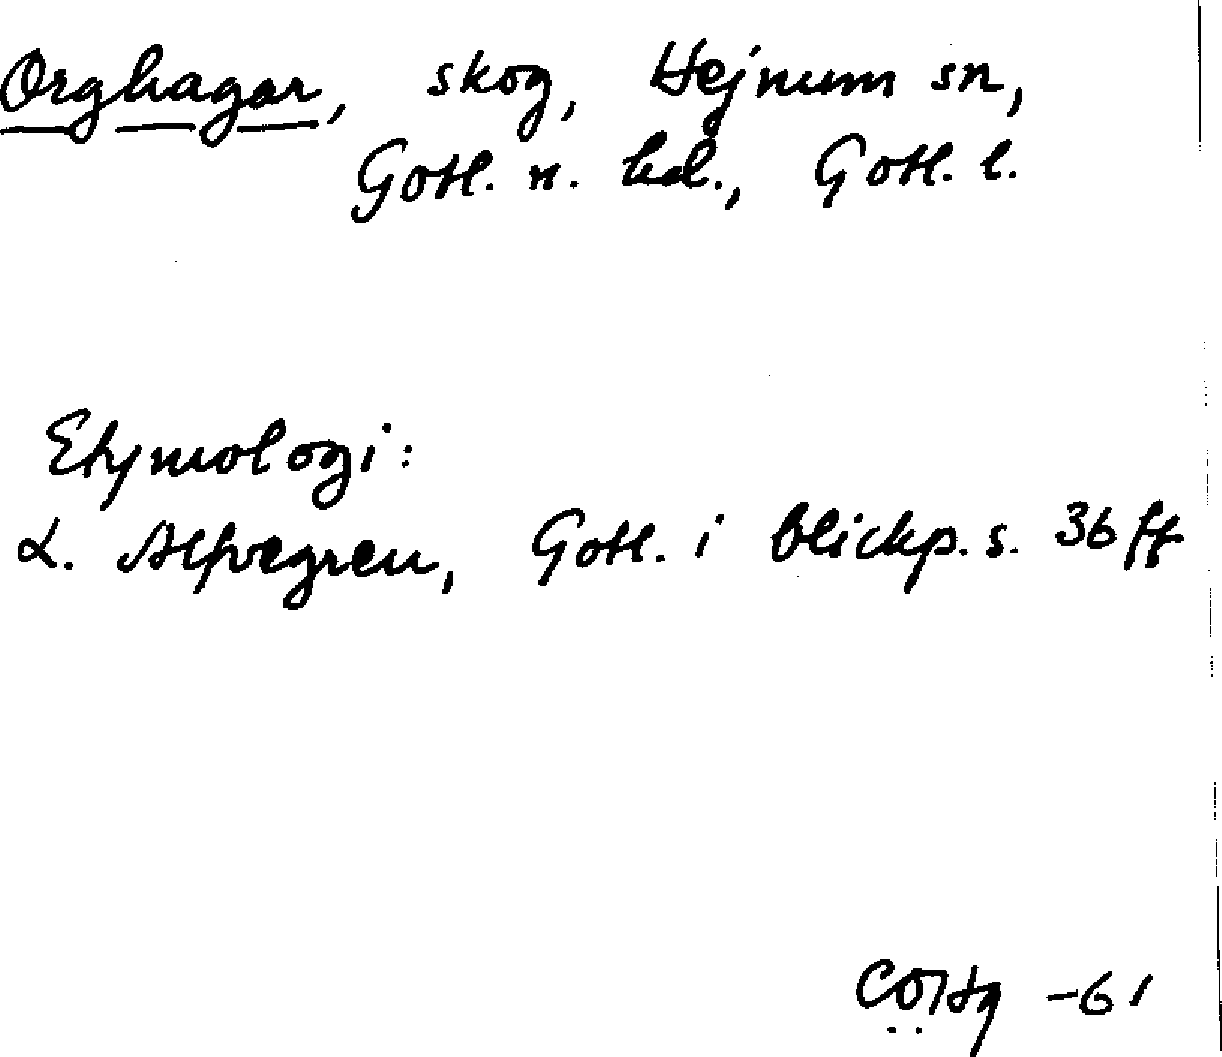 Orghagar, skog, Hejnum sn,
Gotl. n. hd., Gotl. l.
Etymologi:
L. Alfvegren, Gotl. i blickp. s. 36 ff
-61